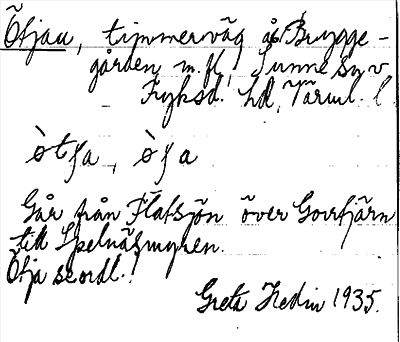 Ötjan, timmerväg å Brygge-
gården m. fl., Sunne sn v
Fryksd. hd, Värml. l.
òtja, òja
Går från Flatsjön över Gorrtjärn
till Spelnäsmyren.
Ötja se ordl.!
Greta Hedin 1935.